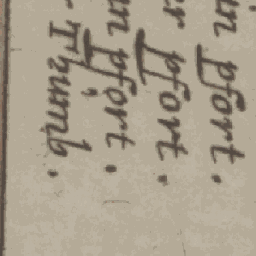 un pfort.
r pfort.
n pfort.
Thumb.